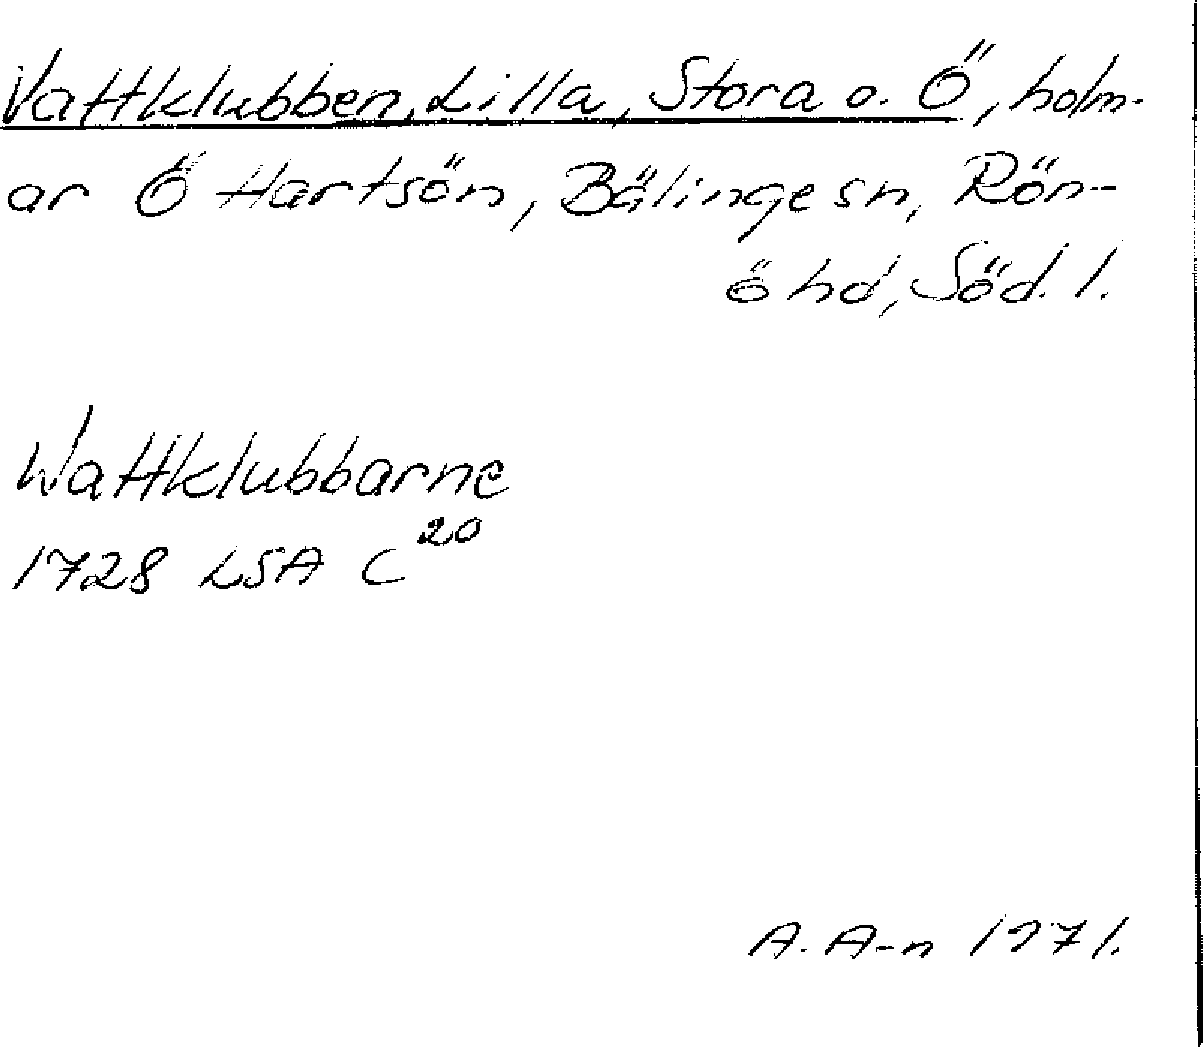 Vattklubben, Lilla, Stora o. Ö, holm-
ar Ö Hartsön, Bälinge sn, Rön-
ö hd, Söd. l.
Wattklubbarne
1728 LSA C 20
A. A-n 1971.